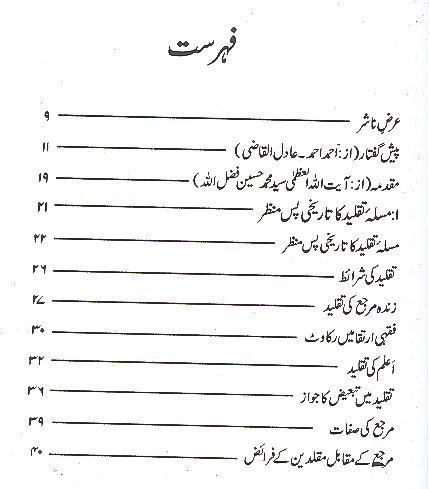 فہرست
عرض ناشر ۹
پیش گفتار (از: احمد احمد۔ عادل القاضی) ۱۱
مقدمہ (از: آیت اللہ العظمٰی سید محمد حسین فضل اللہ) ۱۹
۱: مسئلۂ تقلید کا تاریخی پس منظر ۲۱
مسئلۂ تقلید کا تاریخی پس منظر ۲۲
تقلید کی شرائط ۲۶
زندہ مرجع کی تقلید ۲۷
فقہی ارتقا میں رکاوٹ ۳۰
اَعلم کی تقلید ۳۲
تقلید میں تبعیض کا جواز ۳۶
مرجع کی صفات ۳۹
مرجع کے مقابل مقلدین کے فرائض ۴۰